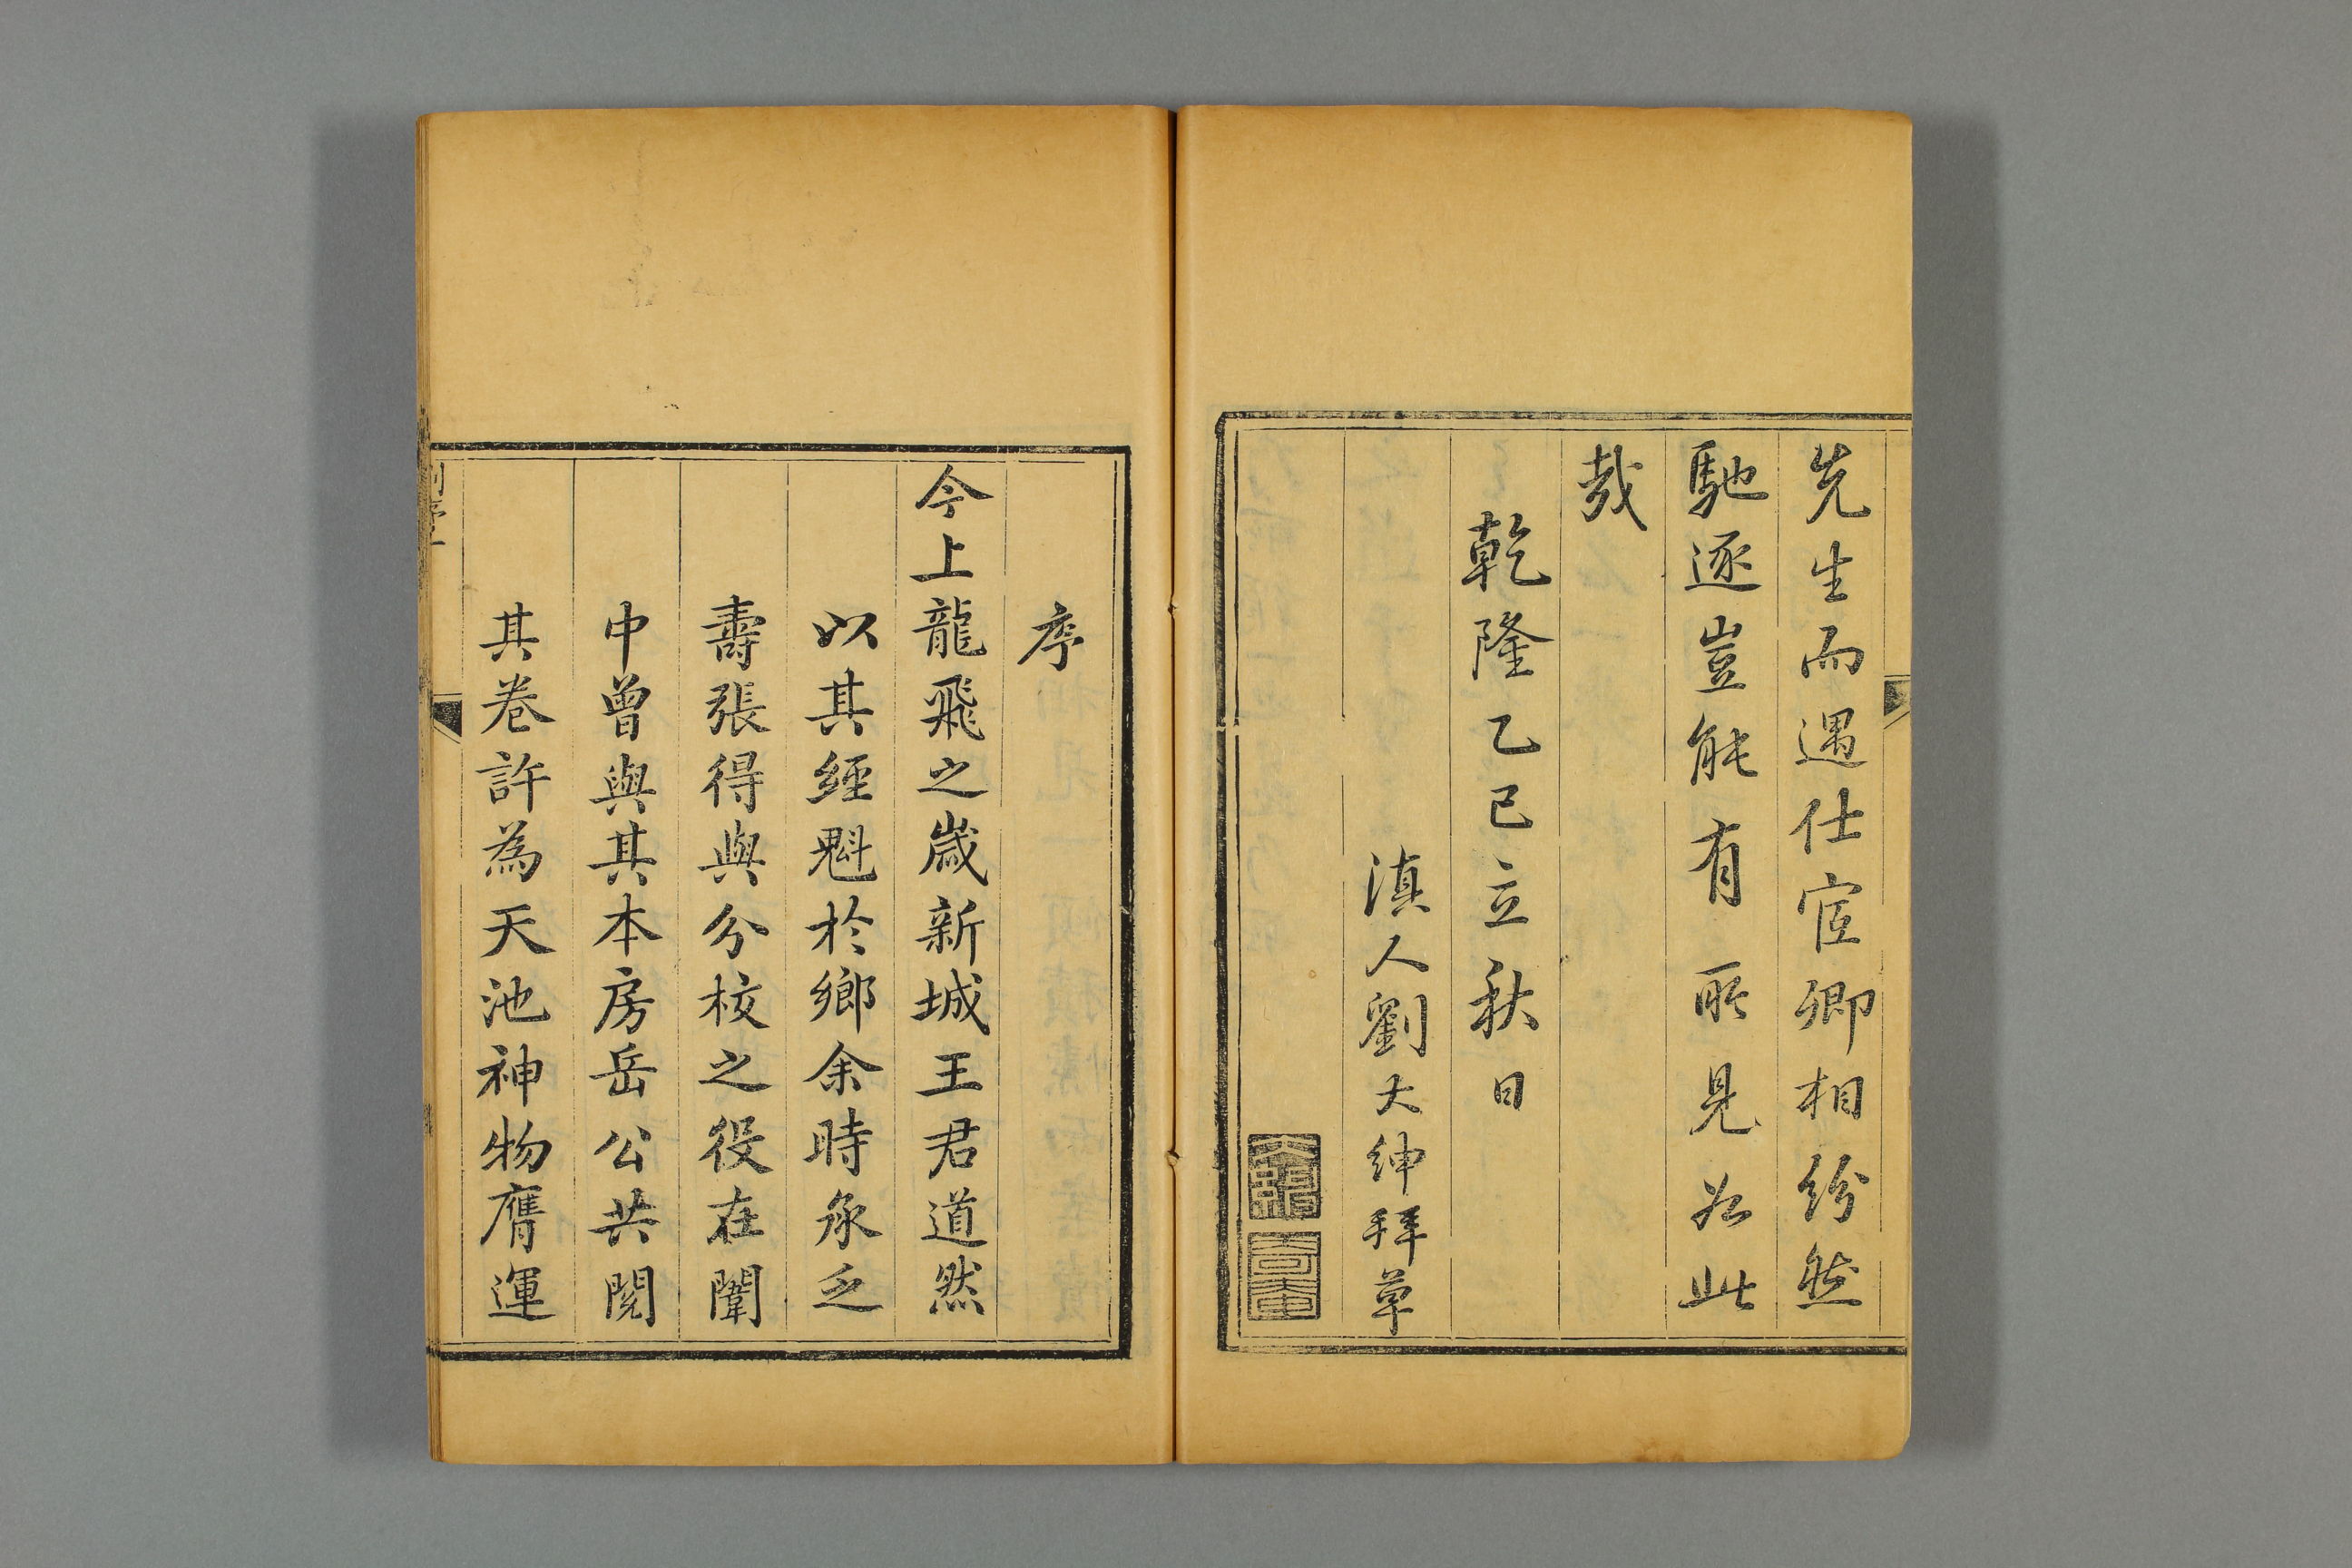 先生而遇仕宦卿相紛然
馳逐豈能有所見於此
哉
乾隆乙巳立秋日
滇人劉大紳拜草
序
今上龍飛之歲新城王君道然
以其經魁於鄉余時承乏
壽張得與分校之役在闈
中曾與其本房岳公共閱
其卷許為天池神物膺運